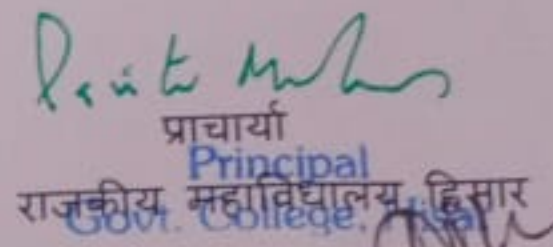 प्राचार्या
Principal
राजकीय महाविद्यालय, हिसार
Govt. College, Hisar